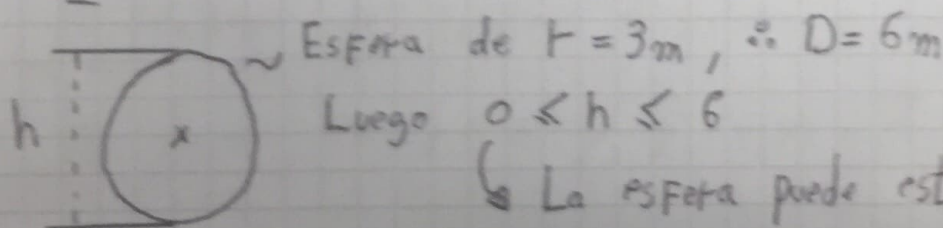 Esfera de r = 3m, ∴ D = 6m
h
Luego 0 ≤ h ≤ 6
↳ La esfera puede est